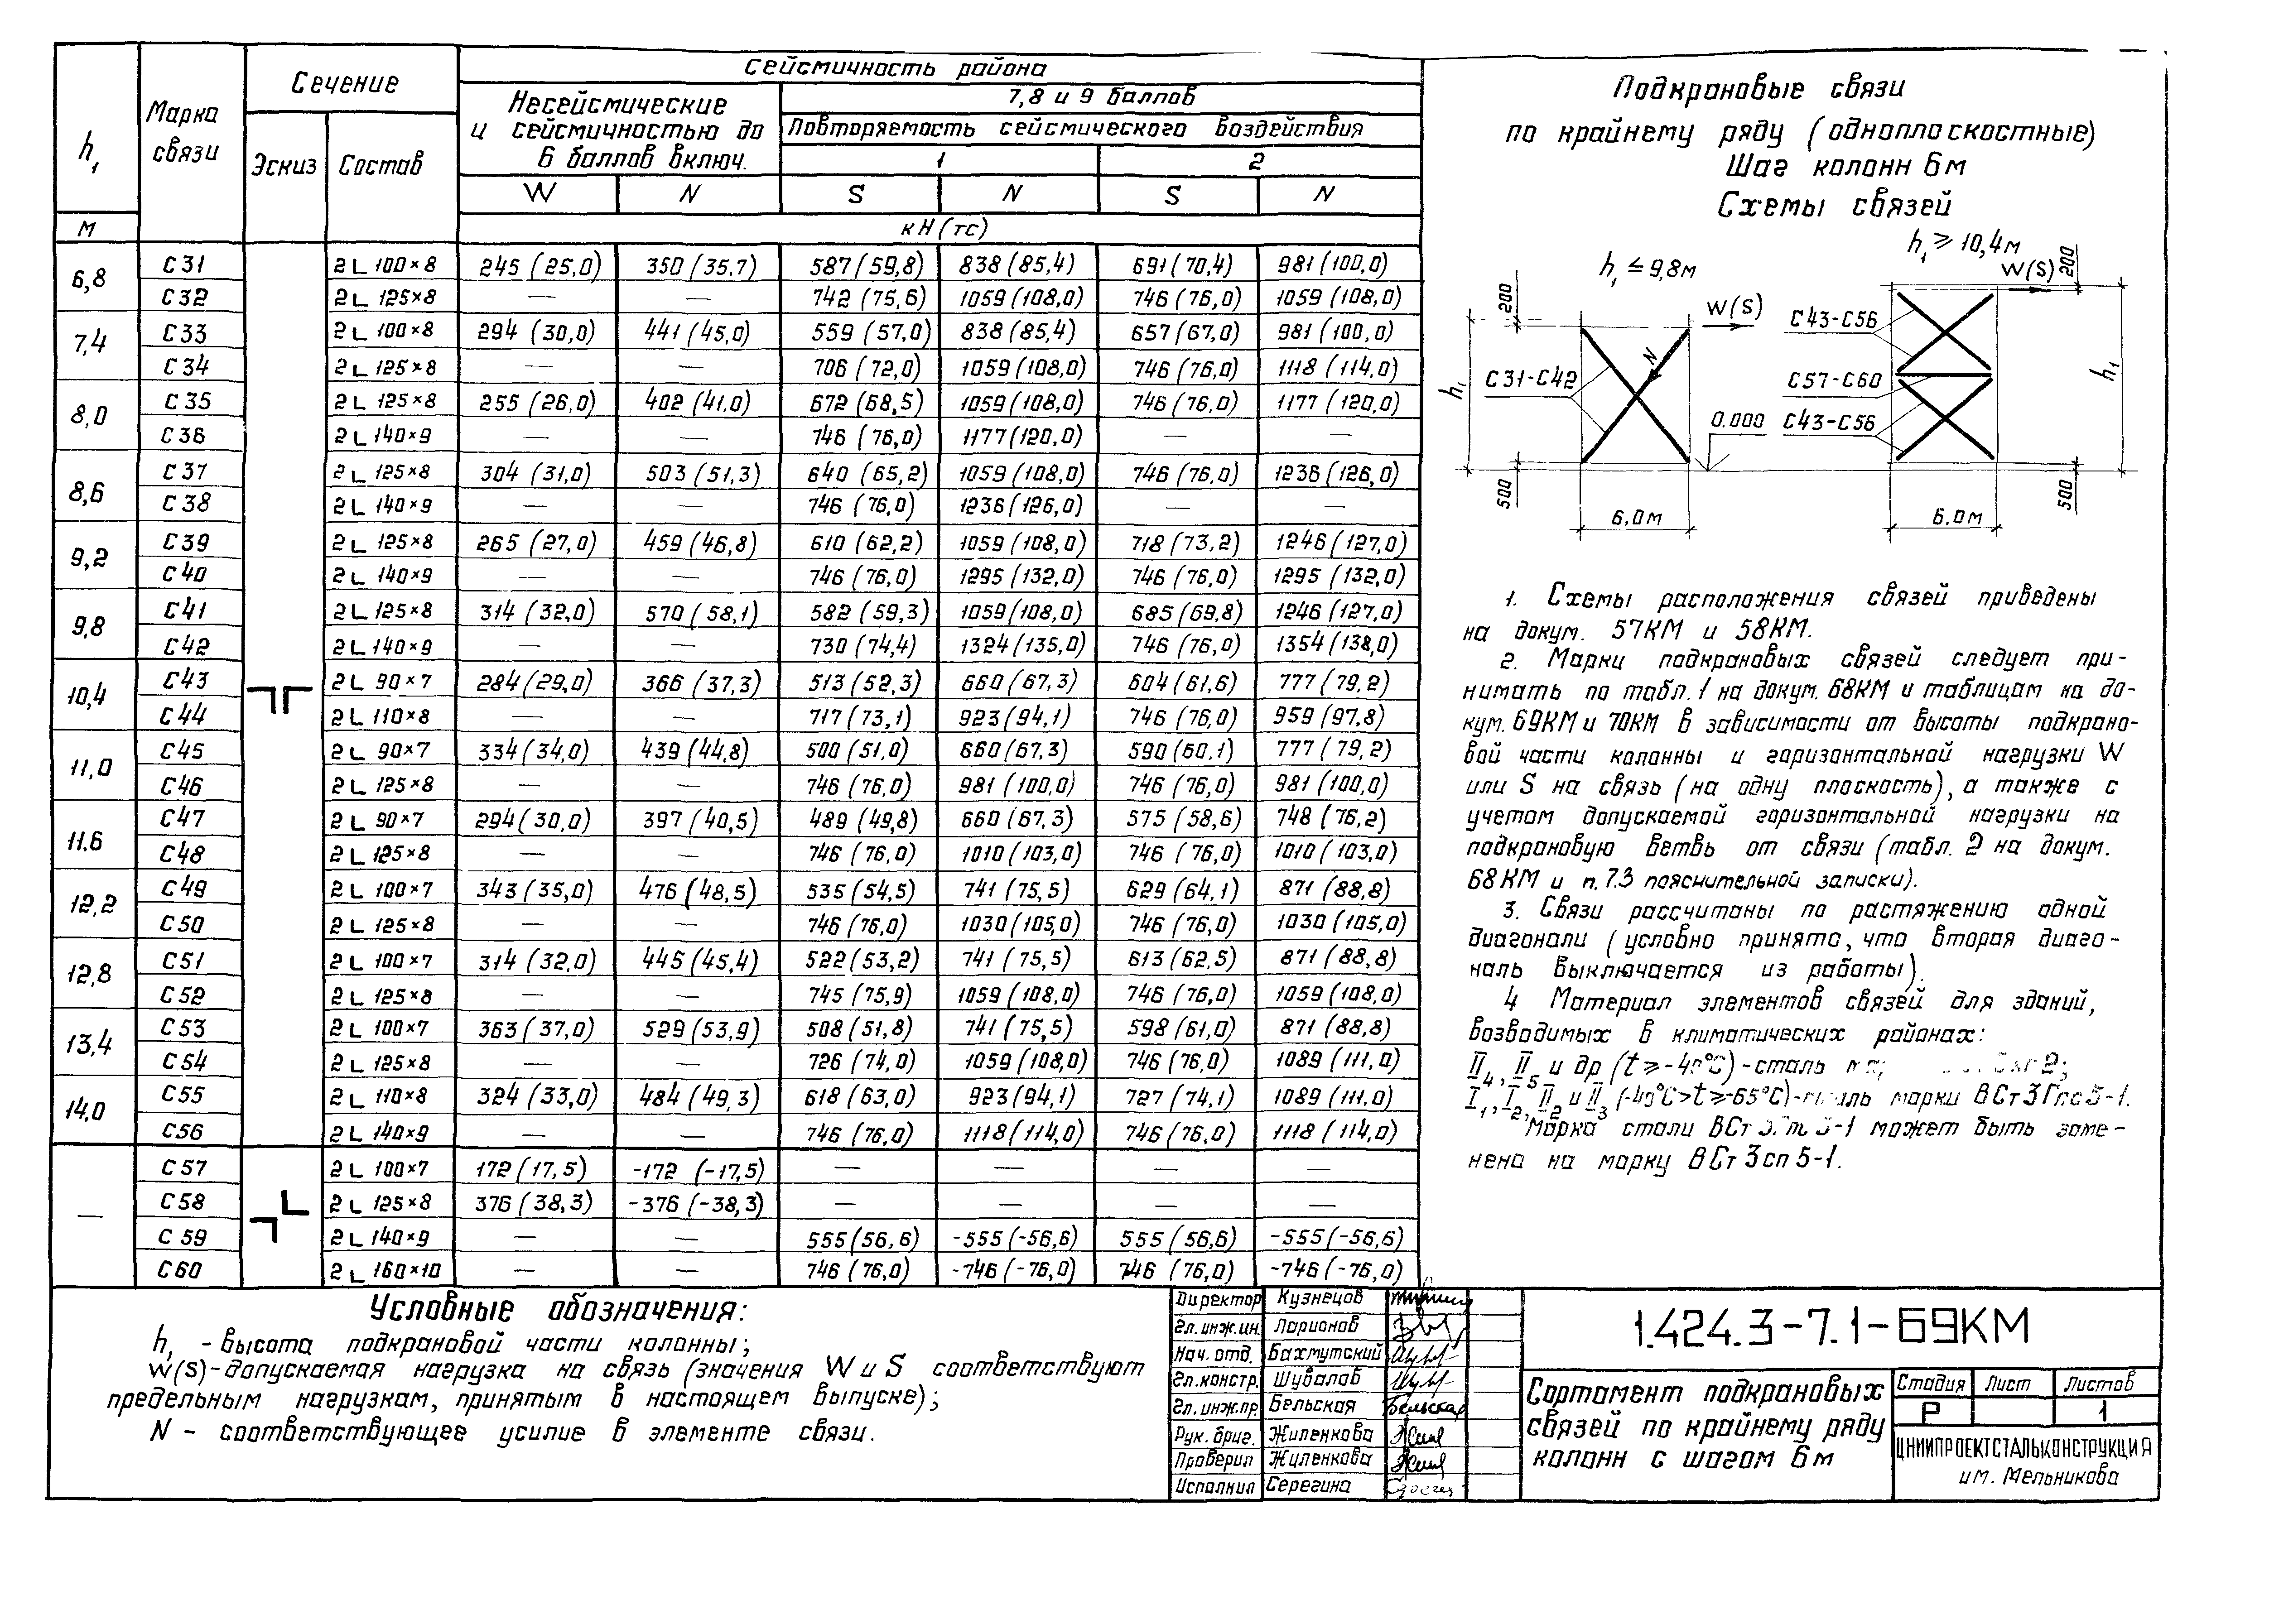 h₁
М
Марка связи
Сечение
Эскиз
Состав
Сейсмичность района
Несейсмические и сейсмичностью до 6 баллов включ.
7,8 и 9 баллов
Повторяемость сейсмического воздействия
1 2
W N S N S N
кН (тс)
6,8
С31 2L 100×8 245 (25,0) 350 (35,7) 587 (59,8) 838 (85,4) 691 (70,4) 981 (100,0)
С32 2L 125×8 — — 742 (75,6) 1059 (108,0) 746 (76,0) 1059 (108,0)
7,4
С33 2L 100×8 294 (30,0) 441 (45,0) 559 (57,0) 838 (85,4) 657 (67,0) 981 (100,0)
С34 2L 125×8 — — 706 (72,0) 1059 (108,0) 746 (76,0) 1118 (114,0)
8,0
С35 2L 125×8 255 (26,0) 402 (41,0) 672 (68,5) 1059 (108,0) 746 (76,0) 1177 (120,0)
С36 2L 140×9 — — 746 (76,0) 1177 (120,0) — —
8,6
С37 2L 125×8 304 (31,0) 503 (51,3) 640 (65,2) 1059 (108,0) 746 (76,0) 1236 (126,0)
С38 2L 140×9 — — 746 (76,0) 1236 (126,0) — —
9,2
С39 2L 125×8 265 (27,0) 459 (46,8) 610 (62,2) 1059 (108,0) 718 (73,2) 1246 (127,0)
С40 2L 140×9 — — 746 (76,0) 1295 (132,0) 746 (76,0) 1295 (132,0)
9,8
С41 2L 125×8 314 (32,0) 570 (58,1) 582 (59,3) 1059 (108,0) 685 (69,8) 1246 (127,0)
С42 2L 140×9 — — 730 (74,4) 1324 (135,0) 746 (76,0) 1354 (138,0)
10,4
С43 2L 90×7 284 (29,0) 366 (37,3) 513 (52,3) 660 (67,3) 604 (61,6) 777 (79,2)
С44 2L 110×8 — — 717 (73,1) 923 (94,1) 746 (76,0) 959 (97,8)
11,0
С45 2L 90×7 334 (34,0) 439 (44,8) 500 (51,0) 660 (67,3) 590 (60,1) 777 (79,2)
С46 2L 125×8 — — 746 (76,0) 981 (100,0) 746 (76,0) 981 (100,0)
11.6
С47 2L 90×7 294 (30,0) 397 (40,5) 489 (49,8) 660 (67,3) 575 (58,6) 748 (76,2)
С48 2L 125×8 — — 746 (76,0) 1010 (103,0) 746 (76,0) 1010 (103,0)
12,2
С49 2L 100×7 343 (35,0) 476 (48,5) 535 (54,5) 741 (75,5) 629 (64,1) 871 (88,8)
С50 2L 125×8 — — 746 (76,0) 1030 (105,0) 746 (76,0) 1030 (105,0)
12,8
С51 2L 100×7 314 (32,0) 445 (45,4) 522 (53,2) 741 (75,5) 613 (62,5) 871 (88,8)
С52 2L 125×8 — — 745 (75,9) 1059 (108,0) 746 (76,0) 1059 (108,0)
13,4
С53 2L 100×7 363 (37,0) 529 (53,9) 508 (51,8) 741 (75,5) 598 (61,0) 871 (88,8)
С54 2L 125×8 — — 726 (74,0) 1059 (108,0) 746 (76,0) 1089 (111,0)
14,0
С55 2L 110×8 324 (33,0) 484 (49,3) 618 (63,0) 923 (94,1) 727 (74,1) 1089 (111,0)
С56 2L 140×9 — — 746 (76,0) 1118 (114,0) 746 (76,0) 1118 (114,0)
—
С57 2L 100×7 172 (17,5) -172 (-17,5) — — — —
С58 2L 125×8 376 (38,3) -376 (-38,3) — — — —
С59 2L 140×9 — — 555 (56,6) -555 (-56,6) 555 (56,6) -555 (-56,6)
С60 2L 160×10 — — 746 (76,0) -746 (-76,0) 746 (76,0) -746 (-76,0)
Условные обозначения:
h₁ - высота подкрановой части колонны;
W(S)-допускаемая нагрузка на связь (значения W и S соответствуют
предельным нагрузкам, принятым в настоящем выпуске);
N - соответствующее усилие в элементе связи.
Подкрановые связи
по крайнему ряду (одноплоскостные)
Шаг колонн 6м
Схемы связей
h₁ ≤ 9,8м
h₁ ≥ 10,4м
200
W(S)
N
С31-С42
h₁
0.000
500
6,0м
200
W(S)
С43-С56
С57-С60
С43-С56
h₁
500
6,0м
1. Схемы расположения связей приведены
на докум. 57КМ и 58КМ.
2. Марки подкрановых связей следует при-
нимать по табл.1 на докум. 68КМ и таблицам на до-
кум. 69КМ и 70КМ в зависимости от высоты подкрано-
вой части колонны и горизонтальной нагрузки W
или S на связь (на одну плоскость), а также с
учетом допускаемой горизонтальной нагрузки на
подкрановую ветвь от связи (табл. 2 на докум.
68КМ и п. 7.3 пояснительной записки).
3. Связи рассчитаны по растяжению одной
диагонали (условно принято, что вторая диаго-
наль выключается из работы).
4 Материал элементов связей для зданий,
возводимых в климатических районах:
II₄, II₅ и др (t ≥ -40°С) - сталь
I₁, I₂, II₂ и II₃ (-40°С>t≥-65°С)-сталь марки ВСт3Гпс5-1.
Марка стали ВСт3Гпс5-1 может быть заме-
нена на марку ВСт3сп5-1.
Директор Кузнецов
Гл. инж. ин. Ларионов
Нач. отд. Бахмутский
Гл. констр. Шувалов
Гл. инж. пр. Бельская
Рук. бриг. Жиленкова
Проверил Жиленкова
Исполнил Серегина
1.424.3-7.1-69КМ
Сортамент подкрановых
связей по крайнему ряду
колонн с шагом 6м
Стадия Лист Листов
Р 1
ЦНИИПРОЕКТСТАЛЬКОНСТРУКЦИЯ
им. Мельникова